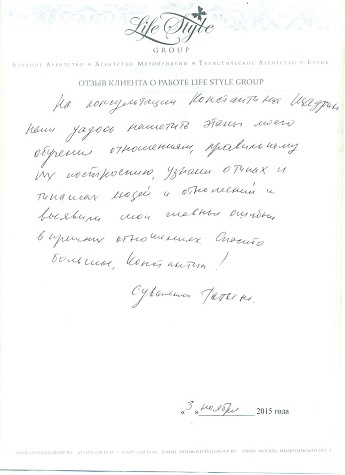 Life Style
GROUP
Брачное Агентство • Агентство Мероприятий • Туристическое Агентство • Бутик
ОТЗЫВ КЛИЕНТА О РАБОТЕ LIFE STYLE GROUP
На консультации Константина
нами удалось наметить этапы моего
обучения отношениям, правильному
их построению, узнали о типах и
типажах людей и отношений и
выявили мои главные ошибки
в прошлых отношениях Спасибо
большое, Константин!
С уважением Татьяна.
«3» ноября 2015 года